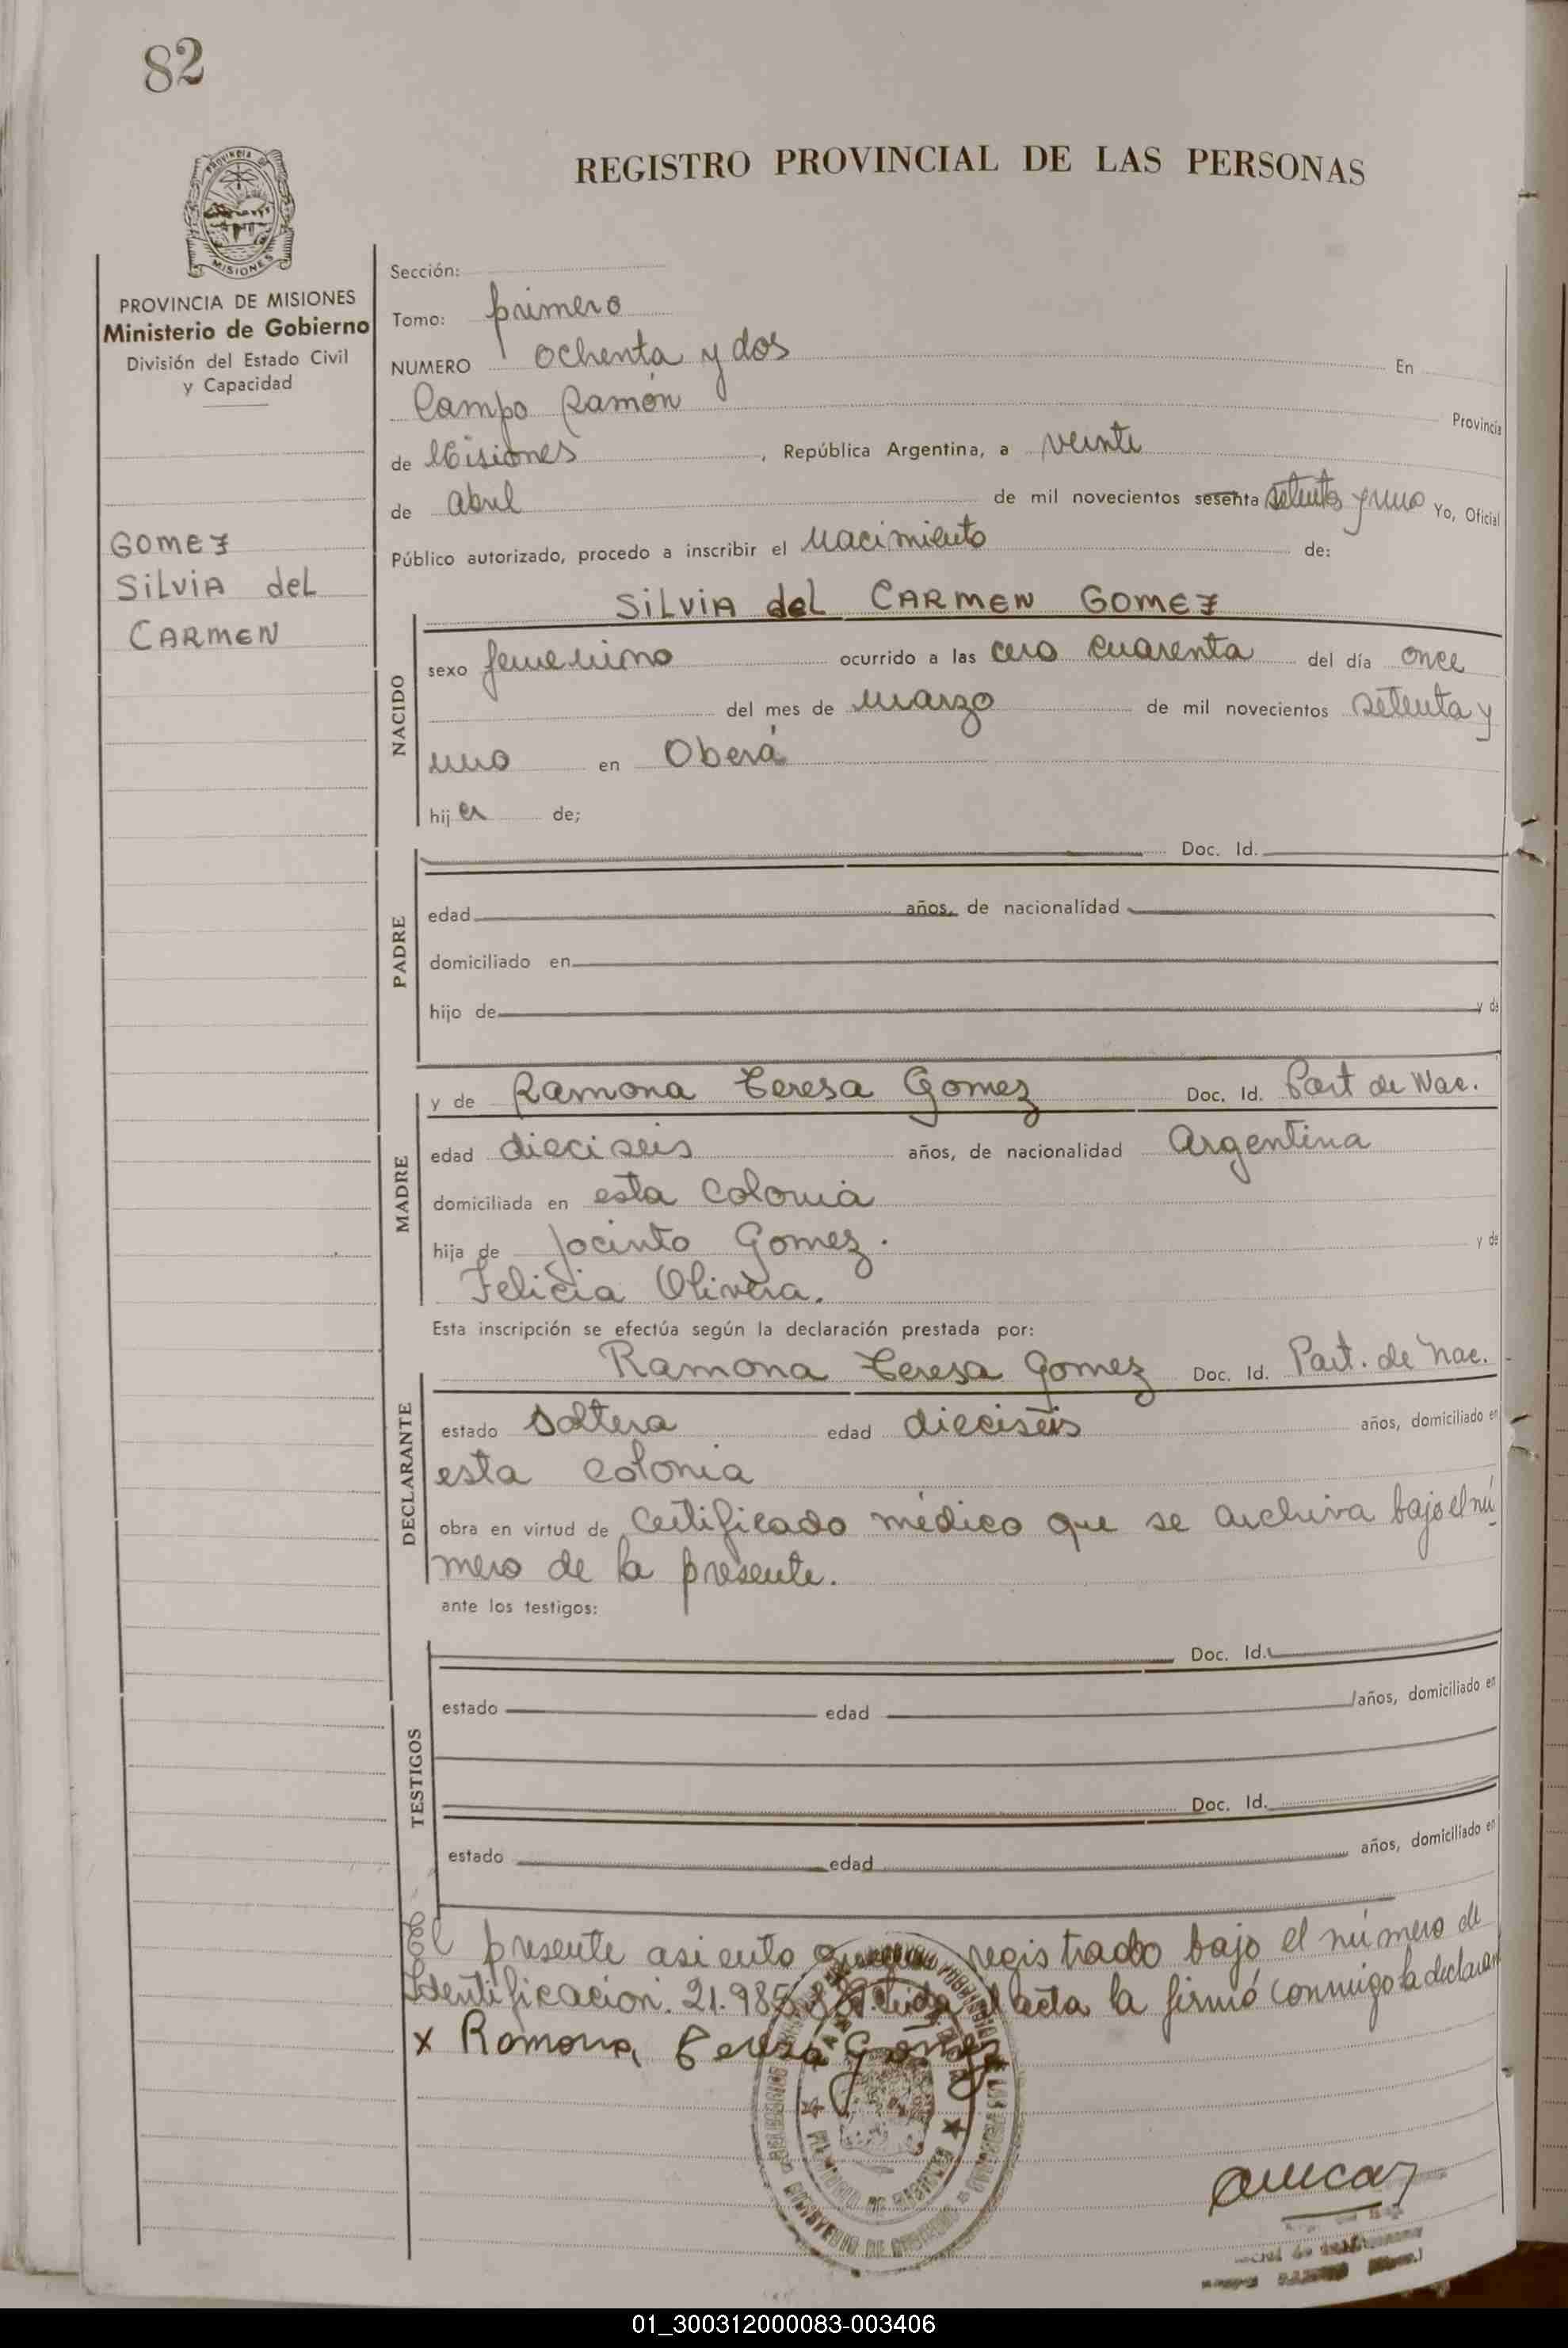 82
PROVINCIA DE
MISIONES
REGISTRO PROVINCIAL DE LAS PERSONAS
PROVINCIA DE MISIONES
Ministerio de Gobierno
División del Estado Civil
y Capacidad
GOMEZ
SiLViA del
CARMEN
Sección:
Tomo: primero
NUMERO ochenta y dos En
Campo Ramón Provincia
de Misiones , República Argentina, a veinte
de abril de mil novecientos sesenta setenta y uno Yo, Oficial
Público autorizado, procedo a inscribir el nacimiento de:
SiLViA del CARMEN GOMEZ
NACIDO
sexo femenino ocurrido a las cero cuarenta del día once
del mes de marzo de mil novecientos setenta y
uno en Oberá
hija de;
PADRE
Doc. Id.
edad años, de nacionalidad
domiciliado en
hijo de y de
MADRE
y de Ramona Teresa Gomez Doc. Id. Part de Nac.
edad dieciseis años, de nacionalidad Argentina
domiciliada en esta colonia
hija de Jacinto Gomez. y de
Felicia Olivera.
Esta inscripción se efectúa según la declaración prestada por:
DECLARANTE
Ramona Teresa Gomez Doc. Id. Part. de Nac.
estado soltera edad dieciseis años, domiciliado en
esta colonia
obra en virtud de Certificado médico que se archiva bajo el nú
mero de la presente.
ante los testigos:
TESTIGOS
Doc. Id.
estado edad años, domiciliado en
Doc. Id.
estado edad años, domiciliado en
El presente asiento queda registrado bajo el número de
Identificacion. 21.985 Leida el acta la firmó conmigo la declaran
x Ramona Teresa Gomez
01_300312000083-003406